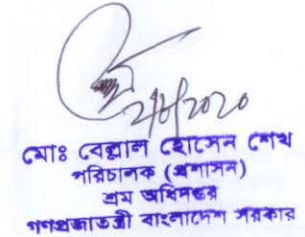 ২/৮/2020
মোঃ বেল্লাল হোসেন শেখ
পরিচালক (প্রশাসন)
শ্রম অধিদপ্তর
গণপ্রজাতন্ত্রী বাংলাদেশ সরকার